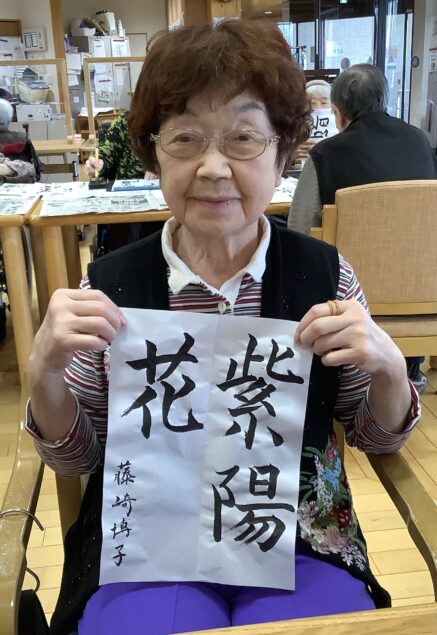 紫陽
花
藤崎博子